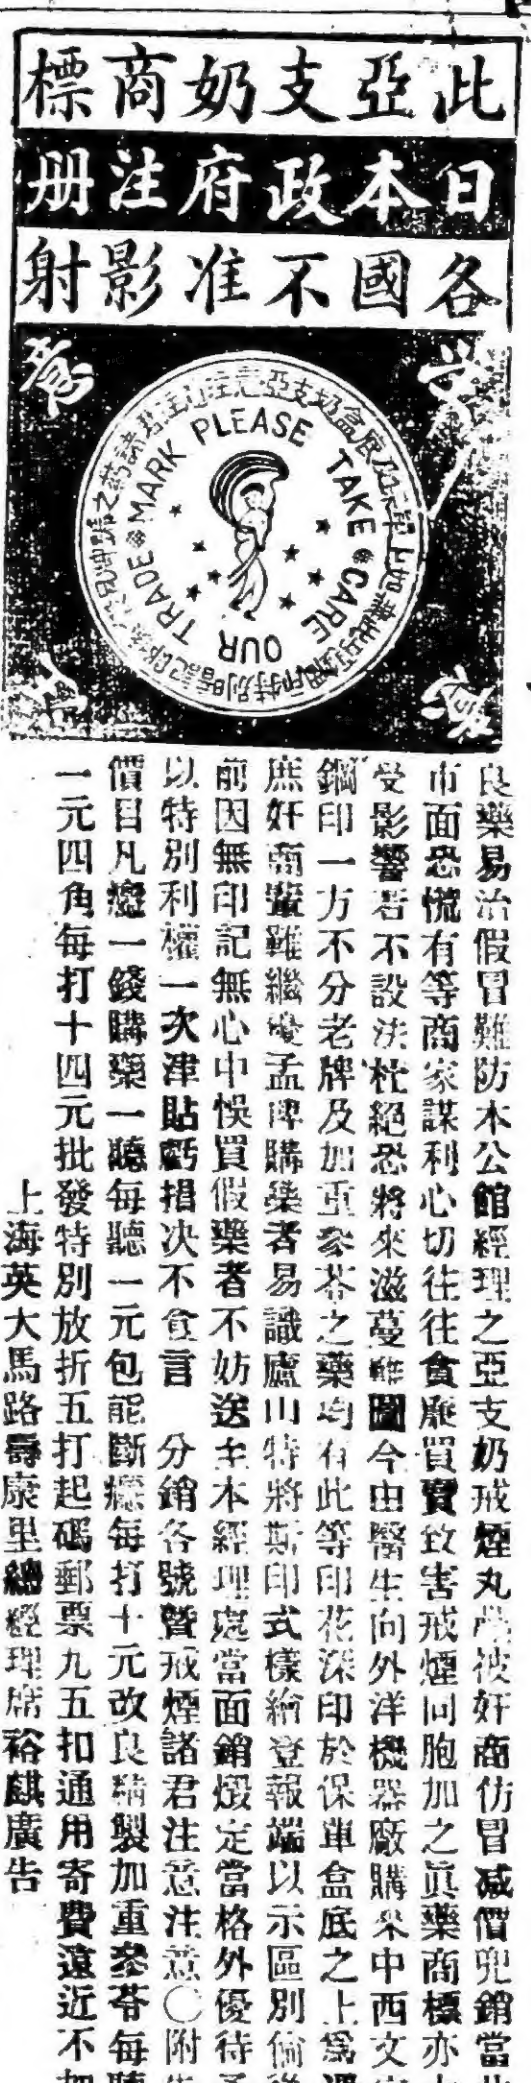 此亞支奶商標
日本政府注册
各國不准影射
PLEASE TAKE CARE OUR TRADE MARK
良藥易治假冒難防本公館經理之亞支奶戒煙丸被奸商仿冒减價兜銷當
市面恐慌有等商家謀利心切往往貪廉買賣致害戒煙同胞加之眞藥商標亦
受影響若不設法杜絕恐將來滋蔓難圖今由醫生向外洋機器廠購來中西文
鋼印一方不分老牌及加重參茸之藥均有此等印花深印於保單盒底之上爲
庶奸商輩雖繼慢孟浪購藥者易識廬山特將斯印式樣繪登報端以示區別倘
前因無印記無心中悞買假藥者不妨送至本經理處當面銷燬定當格外優待
以特別利權一次津貼虧損决不食言 分銷各號暨戒煙諸君注意注意○附
價目凡癮一錢購藥一聽每聽一元包能斷癮每打十元改良精製加重參茸每聽
一元四角每打十四元批發特別放折五打起碼郵票九五扣通用寄費遠近不加
上海英大馬路壽康里總經理席裕麒廣告